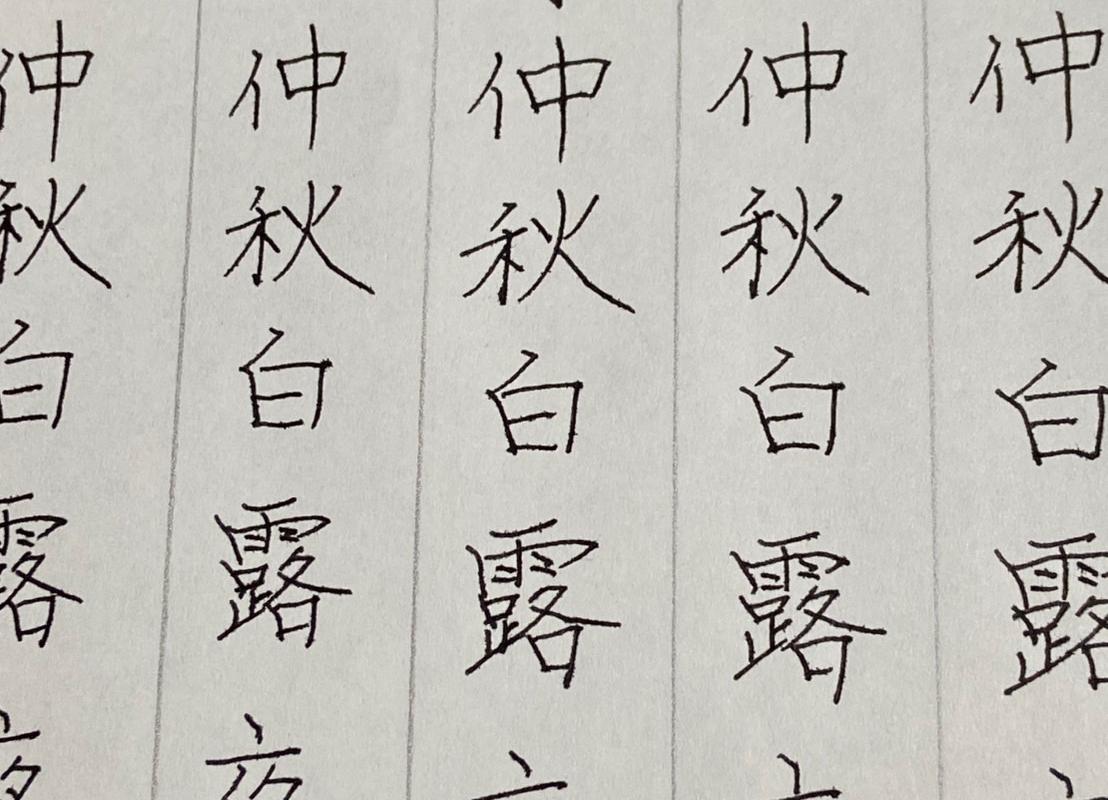 仲秋白露
仲秋白露
仲秋白露
仲秋白露夜
仲秋白露夜